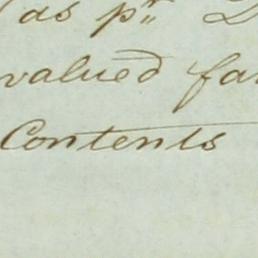 (as pr. D
valued fa
Contents